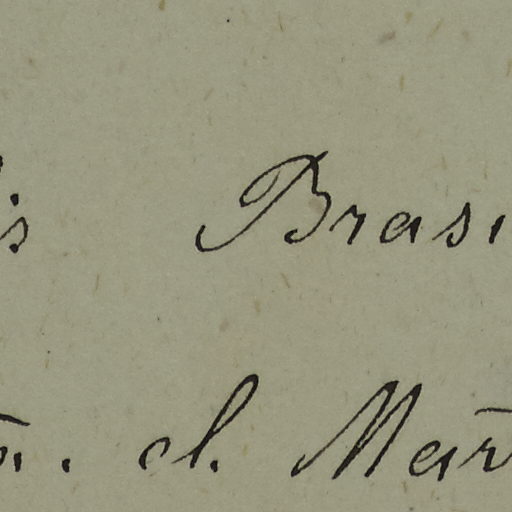 is Brasi
n. cl. Mar